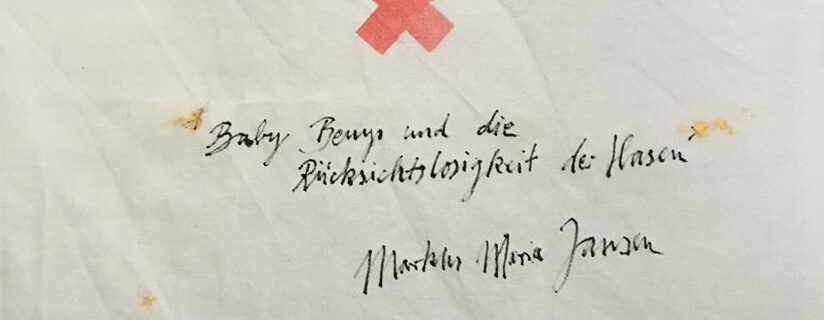 "Baby Beuys und die
Rücksichtslosigkeit der Hasen"
Markus Maria Jansen